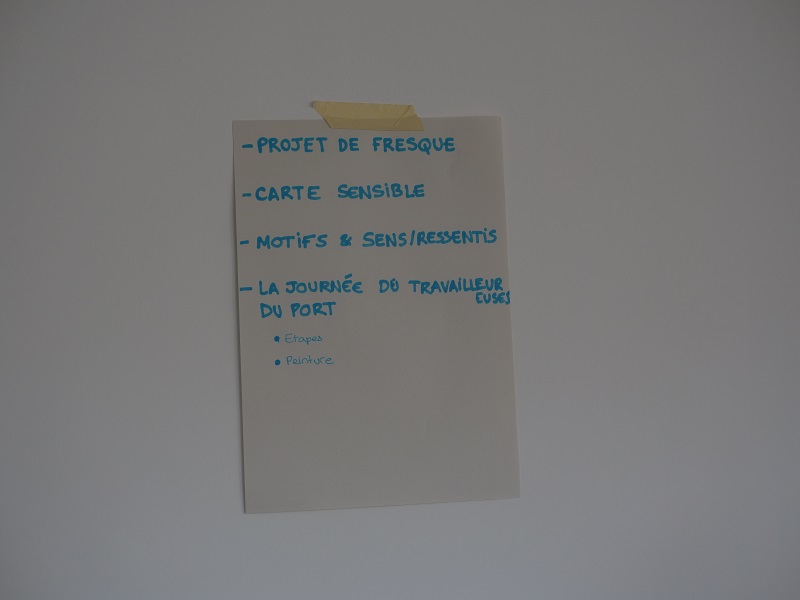 - PROJET DE FRESQUE
- CARTE SENSIBLE
- MOTIFS & SENS/RESSENTIS
- LA JOURNÉE DE TRAVAILLEUR
EUSES
DU PORT
• Etapes
• Peinture